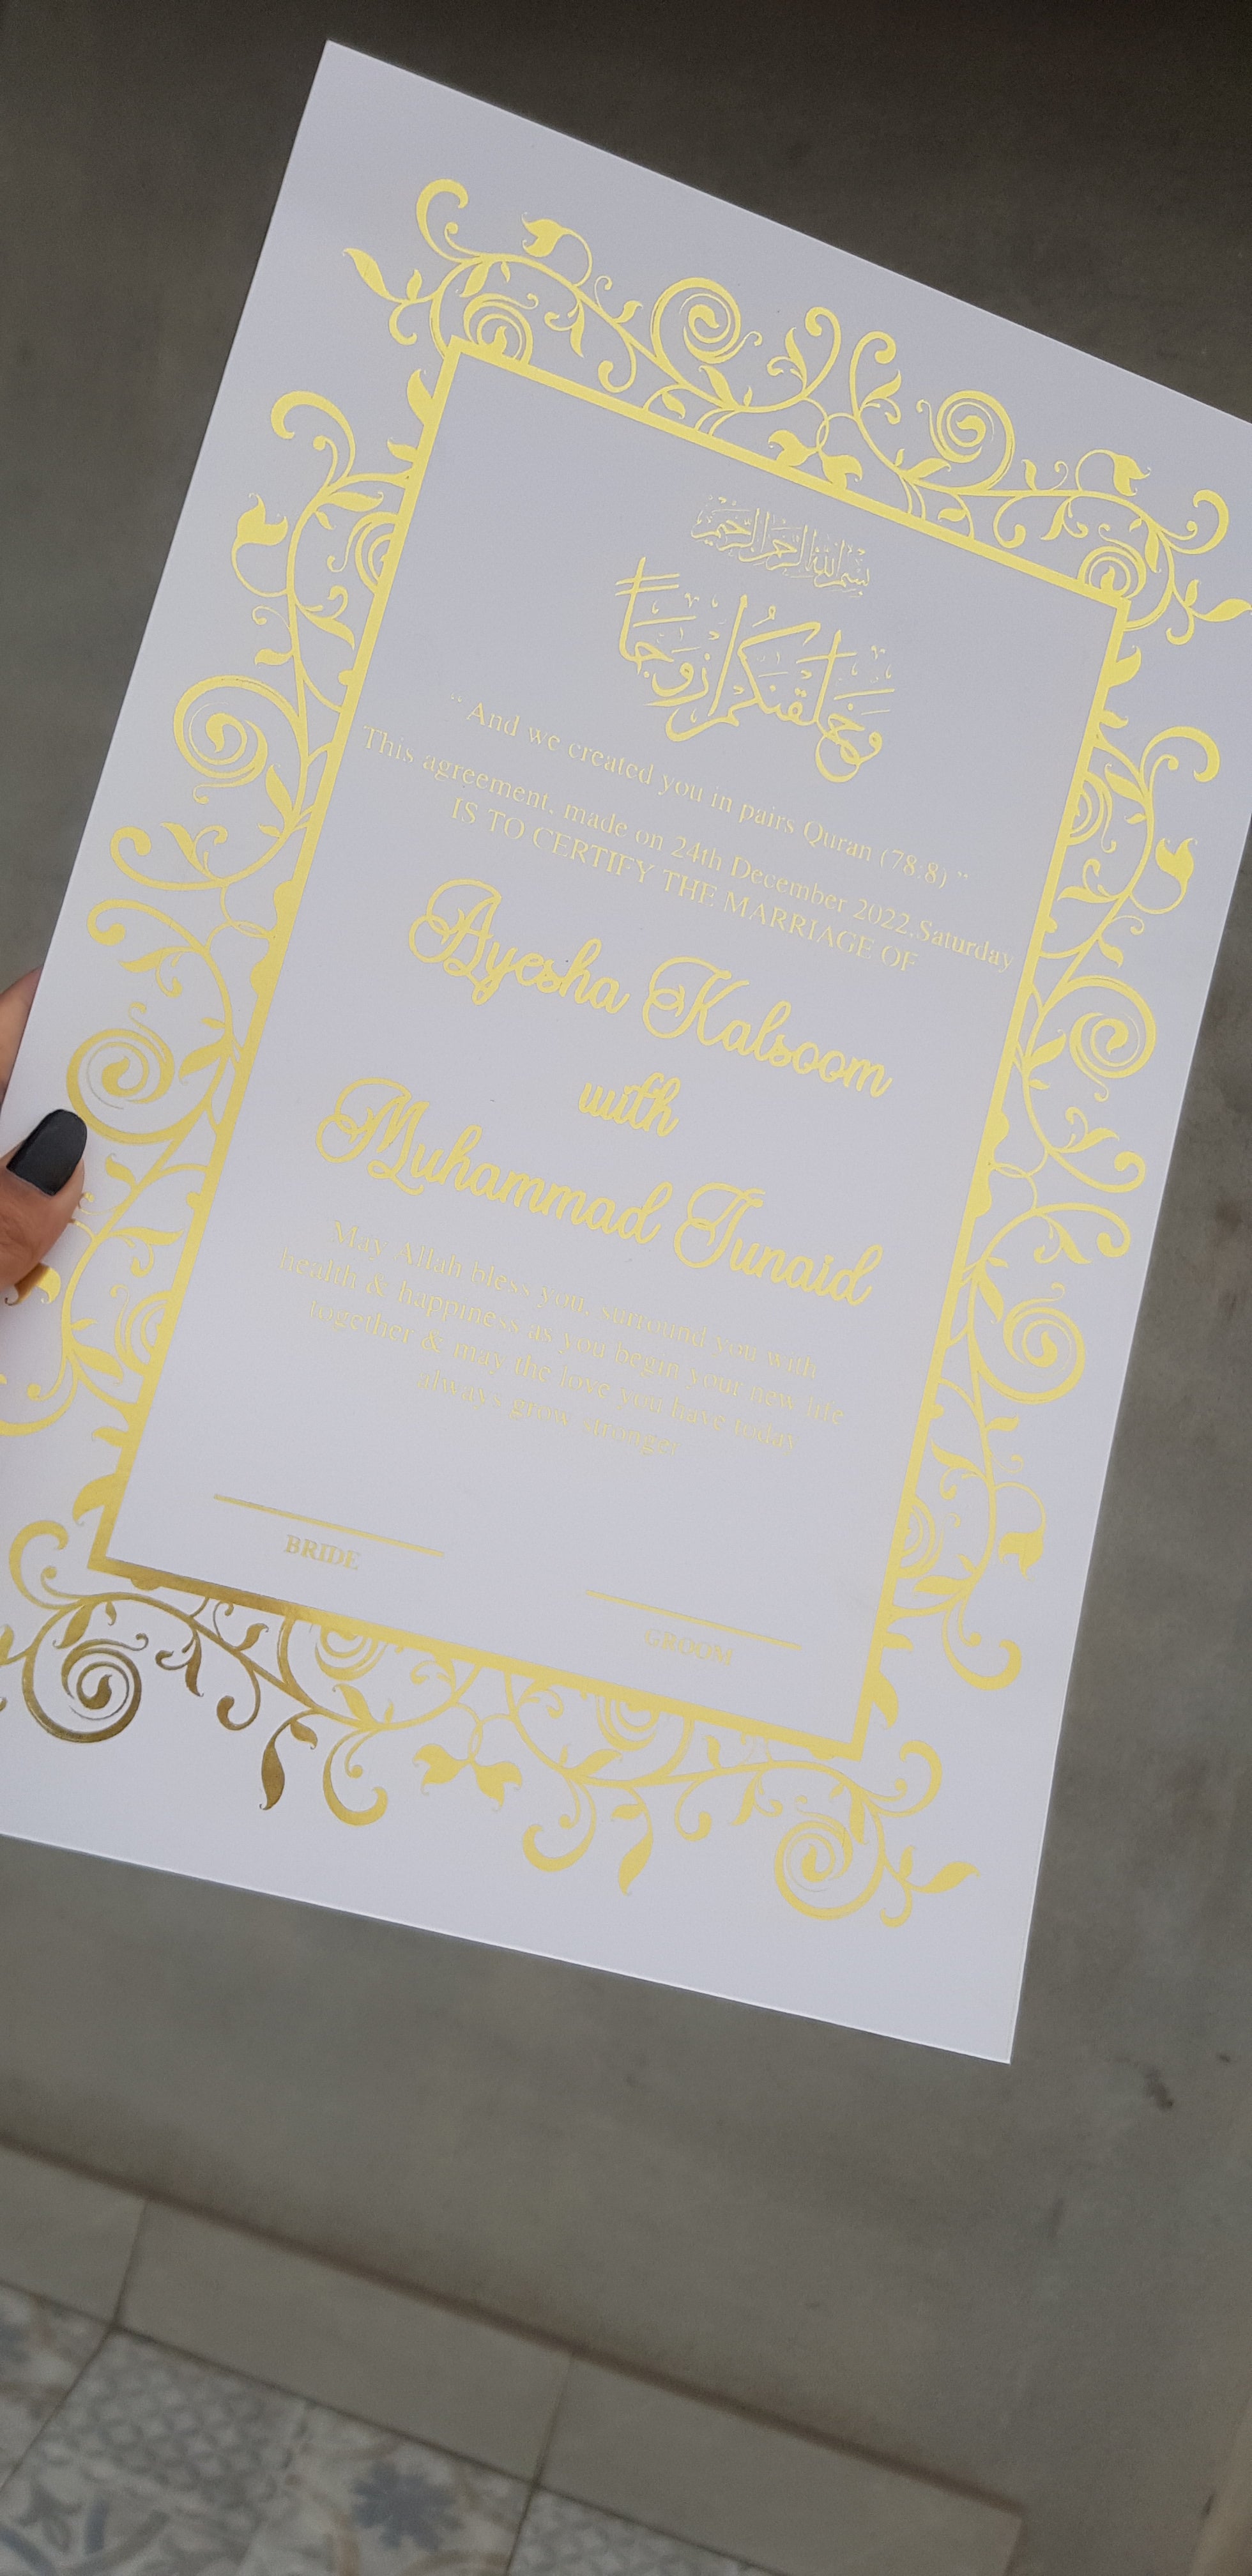 بسم الله الرحمن الرحيم
وَخَلَقْنَٰكُمْ أَزْوَٰجًا
“ And we created you in pairs Quran (78:8) ”
This agreement, made on 24th December 2022.Saturday
IS TO CERTIFY THE MARRIAGE OF
Ayesha Kalsoom
with
Muhammad Junaid
May Allah bless you, surround you with
health & happiness as you begin your new life
together & may the love you have today
always grow stronger
BRIDE
GROOM